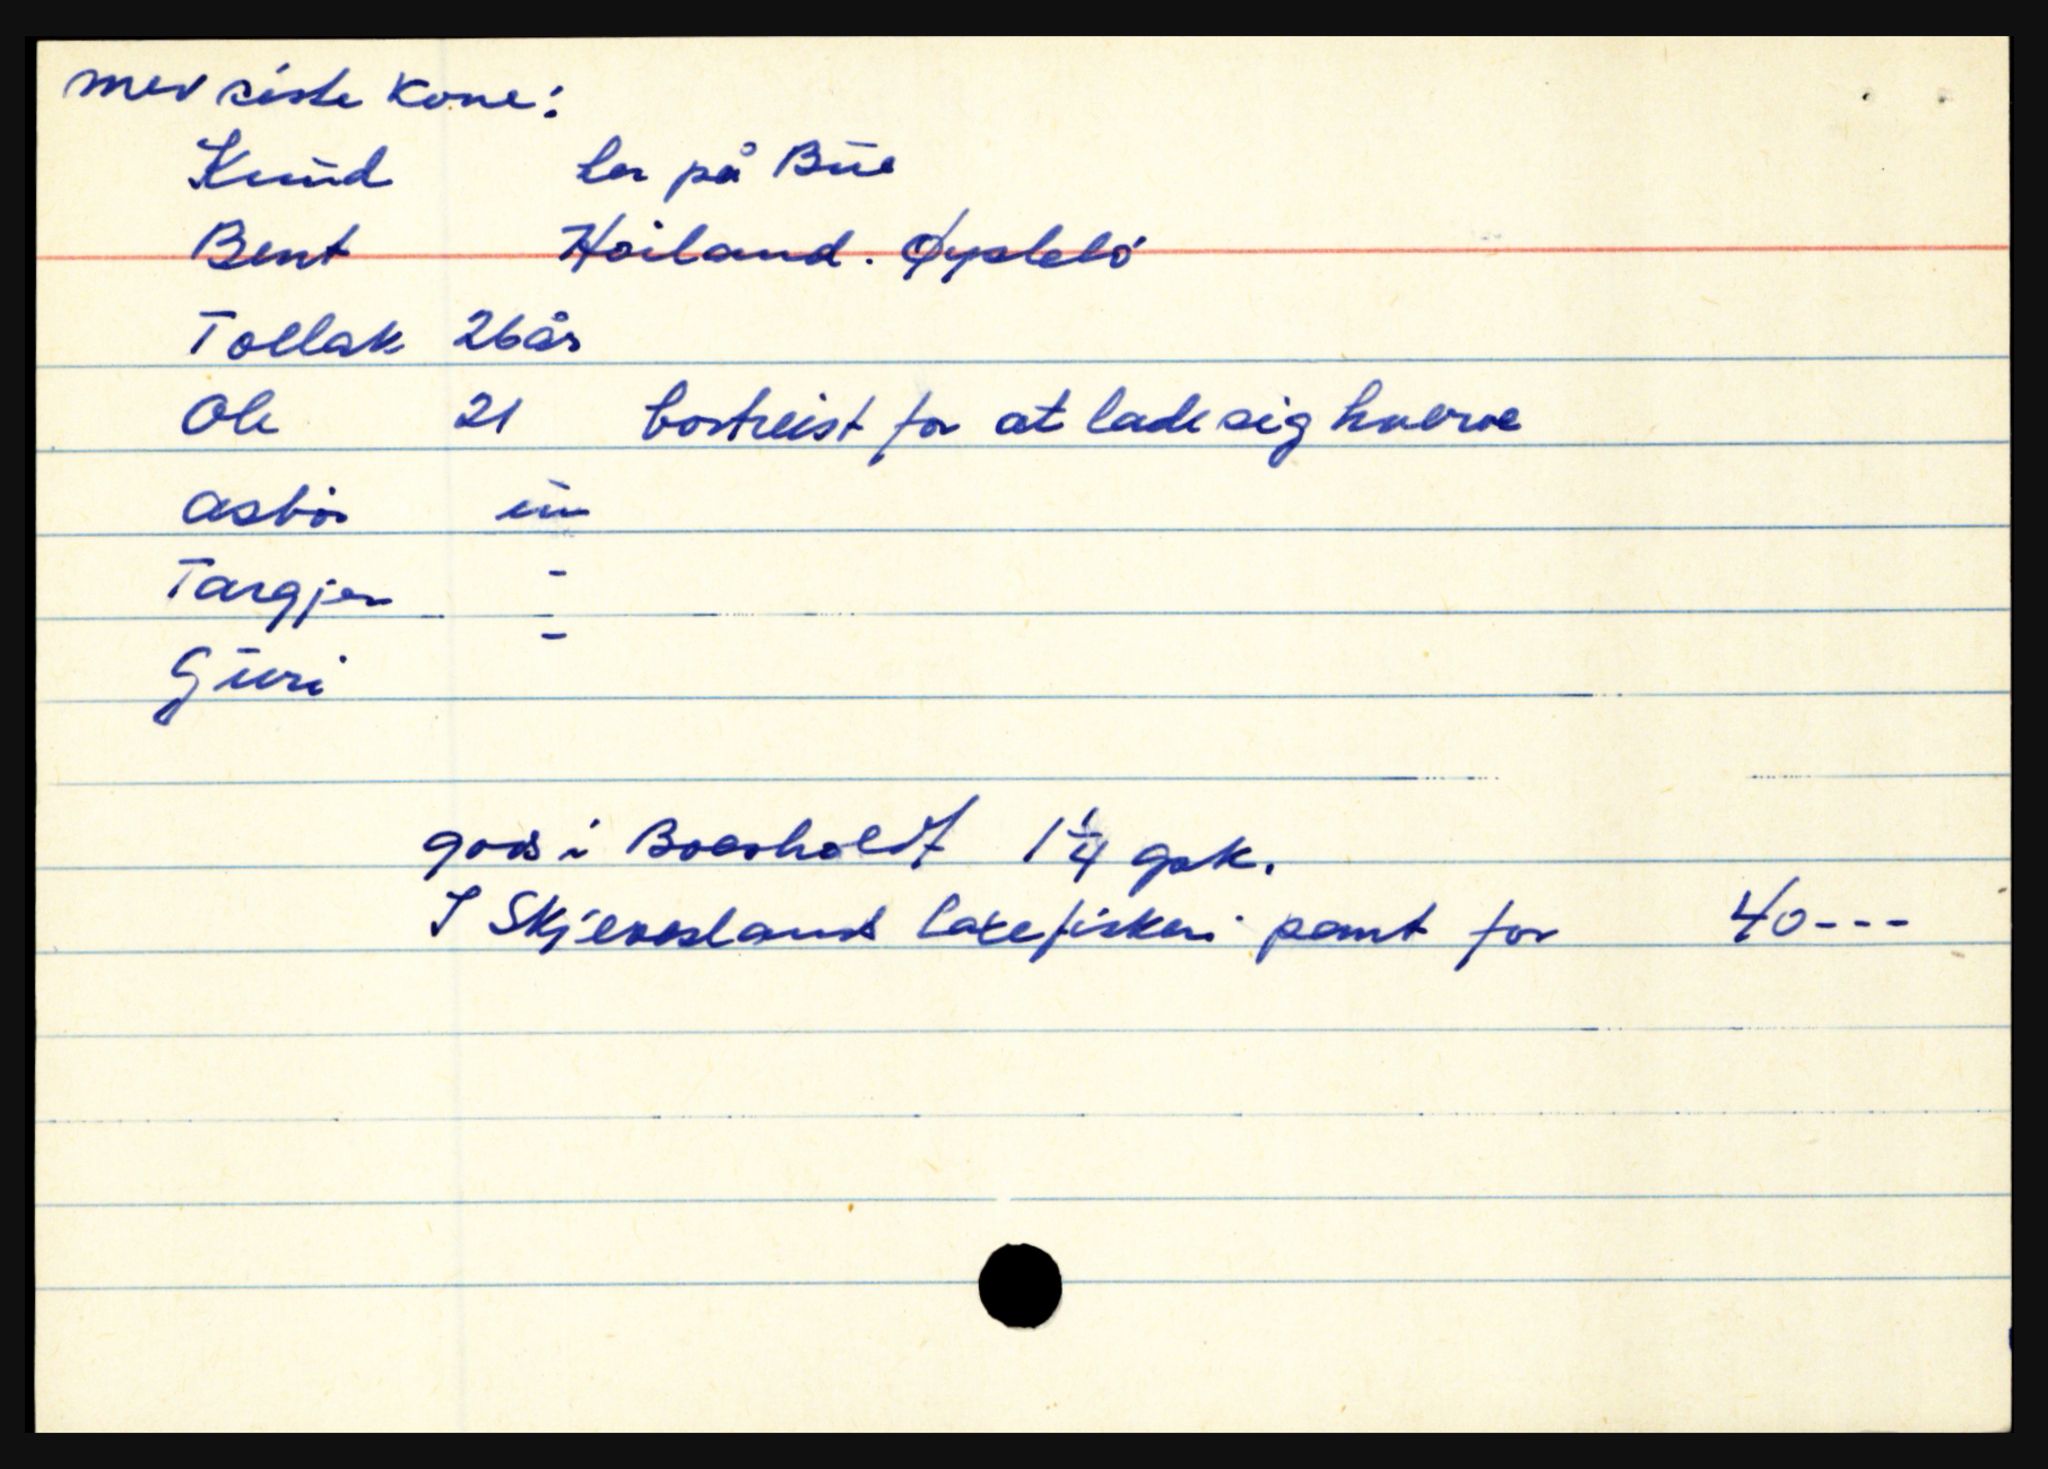 med siste kone:
Knud bor på Bue
Bent Høiland. Øyslebø
Tollak 26 år
Ole 21 bortreist for at lade sig hverve
Asbør um
Targjer -
Guri -
gods i Boesholdt 1 1/4 gsk.
I Skjevesland laxefiskeri pant for 40---